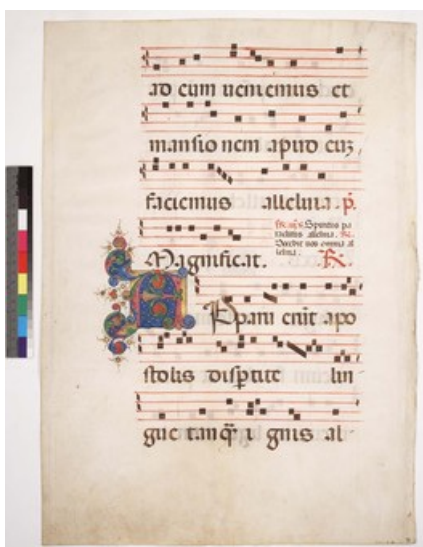 ad eum ueniemus et
mansionem apud eu3,
faciemus alleluia. p̄.
Spiritus pa
raclitus alleluia. R.
Docebit uos omnia al
leluia.
Magnificat. R
Apparuerunt apo
stolis dispertite lin
gue tanq̄ȝ ignis al